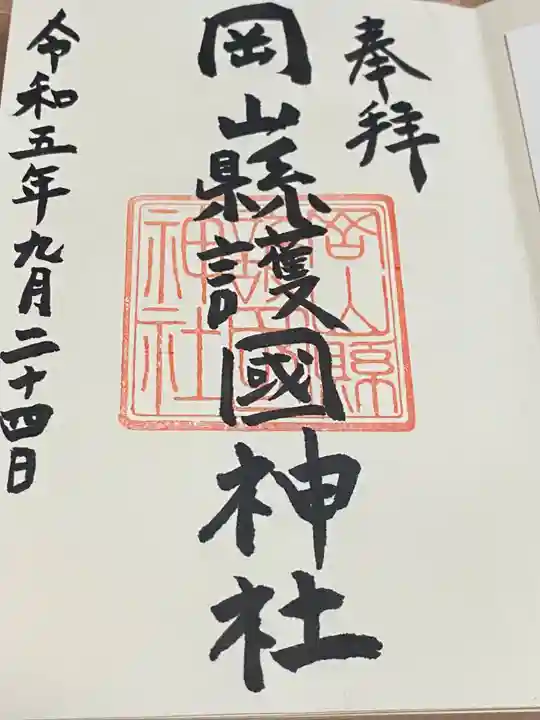 奉拝
岡山縣護國神社
岡山縣護國神社
令和五年九月二十四日